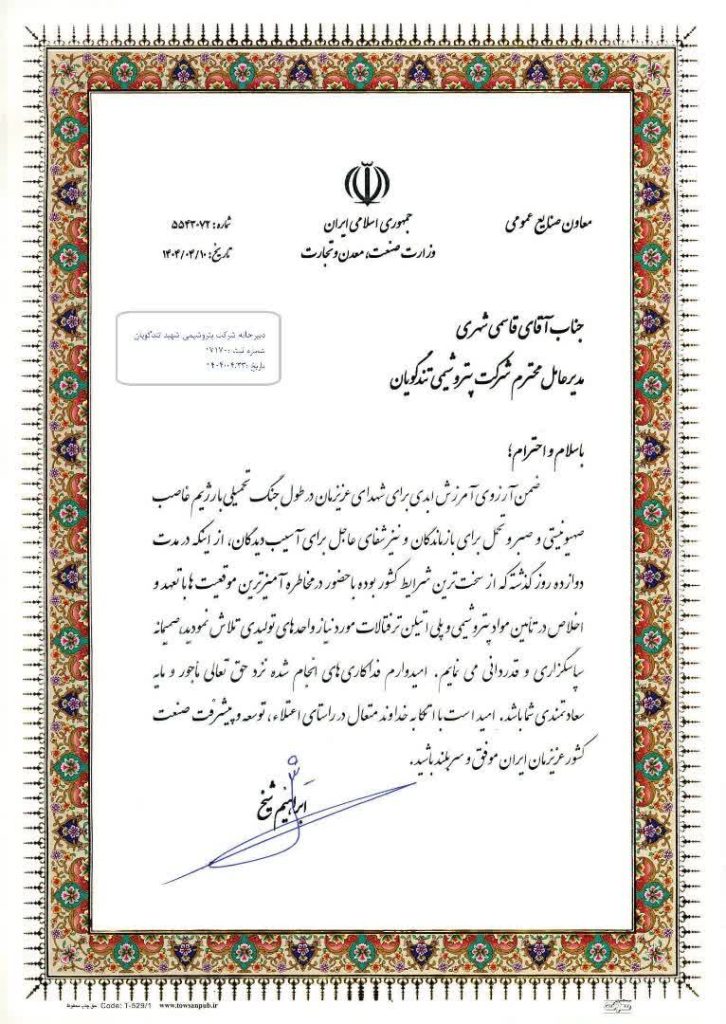 معاون صنایع عمومی
جمهوری اسلامی ایران
وزارت صنعت، معدن و تجارت
شماره: ۵۵۴۳۰۷۲
تاریخ: ۱۴۰۴/۰۴/۱۰
دبیرخانه شرکت پتروشیمی شهید تندگویان
شماره ثبت :
تاریخ :
جناب آقای قاسمی شهری
مدیرعامل محترم شرکت پتروشیمی تندگویان
باسلام و احترام؛
ضمن آرزوی آمرزش ابدی برای شهدای عزیزمان در طول جنگ تحمیلی با رژیم غاصب
صهیونیتی و صبر و تحمل برای بازماندگان و نیز شفای عاجل برای آسیب دیدگان، از اینکه در مدت
دوازده روز گذشته که از سخت ترین شرایط کشور بوده با حضور در مخاطره آمیزترین موقعیت ها با تعهد و
اخلاص در تأمین مواد پتروشیمی و پلی اتیلن ترفتالات مورد نیاز واحدهای تولیدی تلاش نمودید، صمیمانه
سپاسگزاری و قدردانی می نمایم. امیدوارم فداکاری های انجام شده نزد حق تعالی مأجور و مایه
سعادتمندی شما باشد. امید است با اتکا به خداوند متعال در راستای اعتلاء، توسعه و پیشرفت صنعت
کشور عزیزمان ایران موفق و سربلند باشید.
ابراهیم شیخ
Code: T-529/1 www.towsanpub.ir